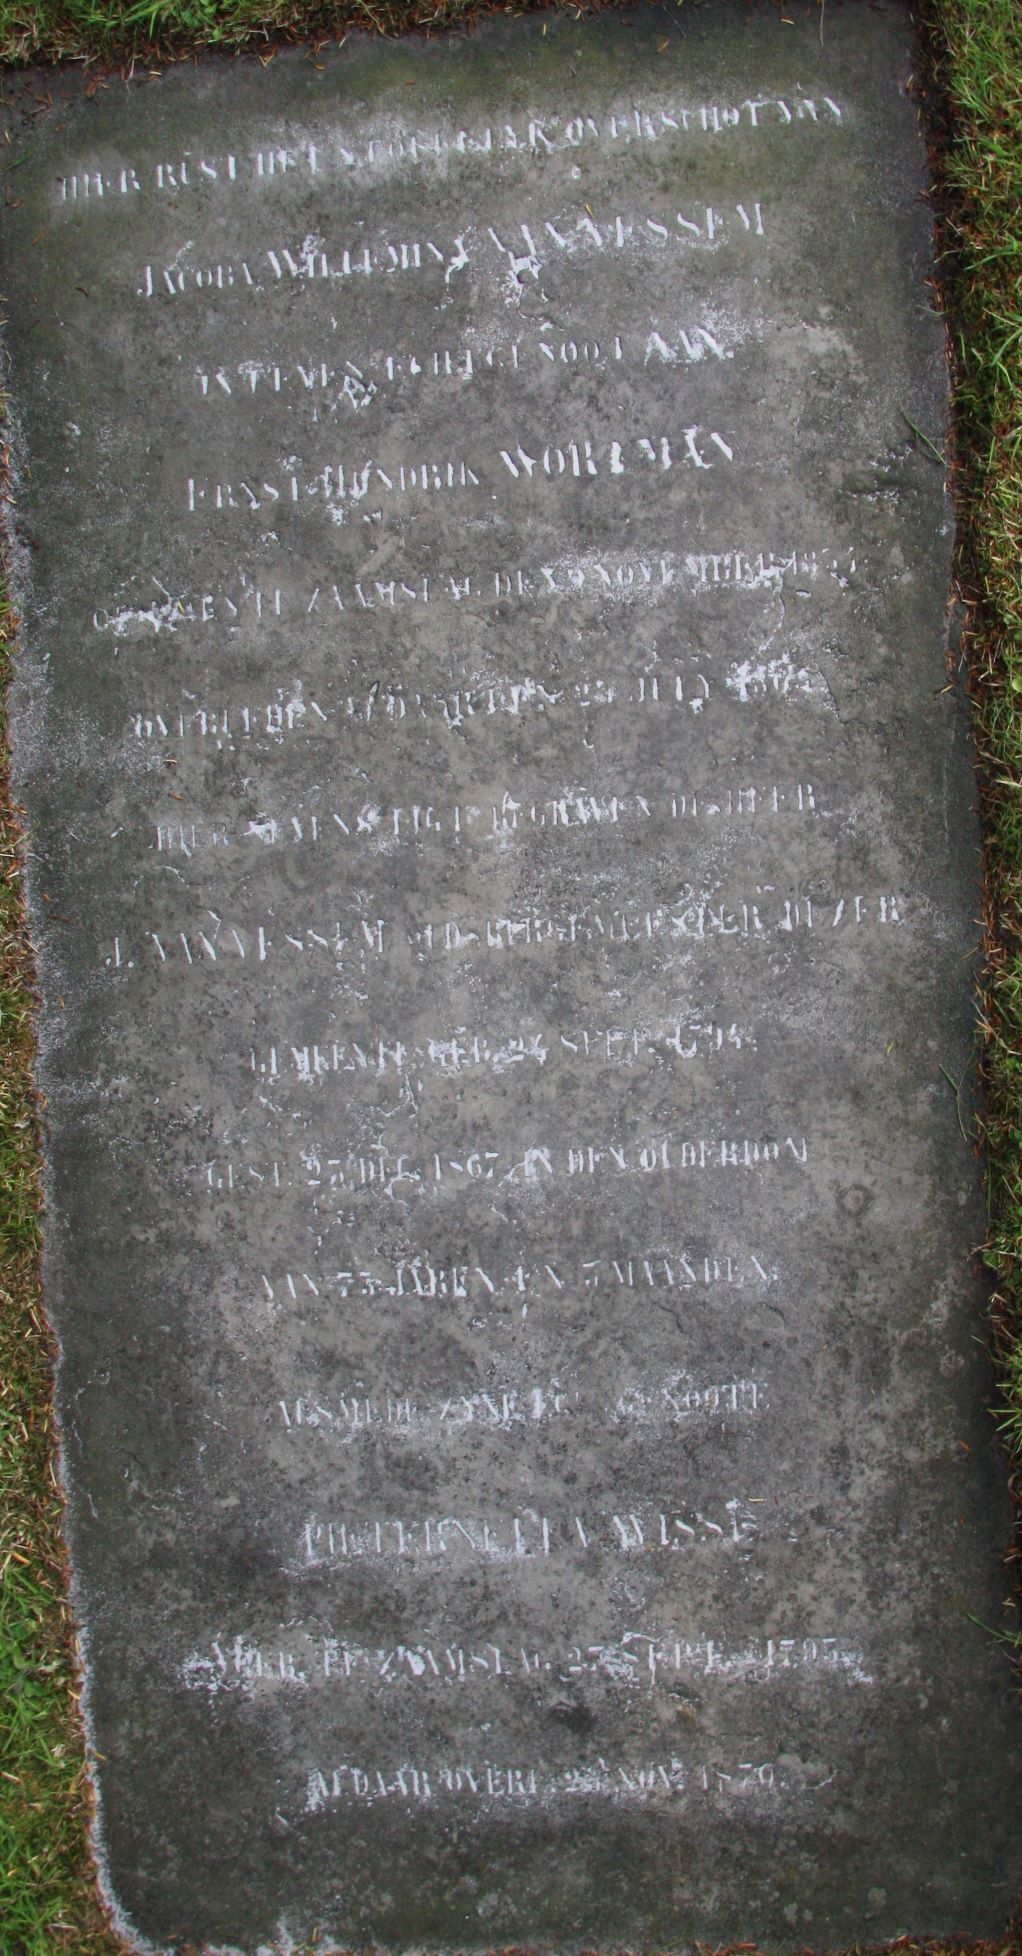 HIER RUST HET STOFFELIJK OVERSCHOT VAN
JACOBA WILLEMINA VAN VESSEM
IN LEVEN ECHTGENOOT VAN
ERNST HENDRIK WORTMAN
GEBOREN TE ZAAMSLAG DEN NOVEMBER
OVERLEDEN JULY
HIER NEVENS LIGT BEGRAVEN DE HEER
J. VAN VESSEM OUD-BURGEMEESTER DEZER
GEMEENTE GEB. 24 SEPT. 1794.
GEST. 23 DEC. 1867 IN DEN OUDERDOM
VAN 73 JAREN EN 3 MAANDEN.
ALSMEDE ZYNE ECHTGENOOTE
PIETERNELLA WISSE
GEB. TE ZAAMSLAG 23 SEPT.
ALDAAR OVERL. NOV. 1870.